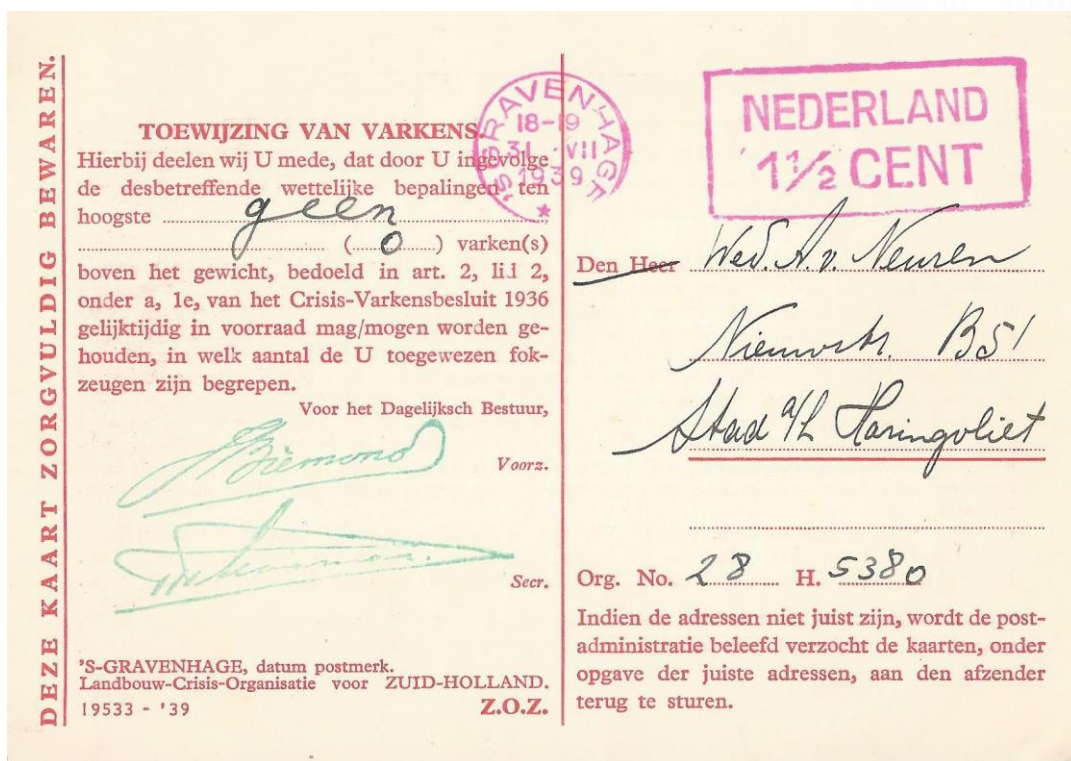 DEZE KAART ZORGVULDIG BEWAREN.
TOEWIJZING VAN VARKENS.
Hierbij deelen wij U mede, dat door U ingevolge
de desbetreffende wettelijke bepalingen ten
hoogste geen
(0) varken(s)
boven het gewicht, bedoeld in art. 2, lid 2,
onder a, 1e, van het Crisis-Varkensbesluit 1936
gelijktijdig in voorraad mag/mogen worden ge-
houden, in welk aantal de U toegewezen fok-
zeugen zijn begrepen.
Voor het Dagelijksch Bestuur,
Biemond
Voorz.
Secr.
'S-GRAVENHAGE, datum postmerk.
Landbouw-Crisis-Organisatie voor ZUID-HOLLAND.
19533 - '39 Z.O.Z.
'S-GRAVENHAGE
18-19
31 VII
1939
NEDERLAND
1½ CENT
Den Heer Wed. A. v. Neuren
Nieuwstr. B51
Stad a/h Haringvliet
Org. No. 28 H. 5380
Indien de adressen niet juist zijn, wordt de post-
administratie beleefd verzocht de kaarten, onder
opgave der juiste adressen, aan den afzender
terug te sturen.